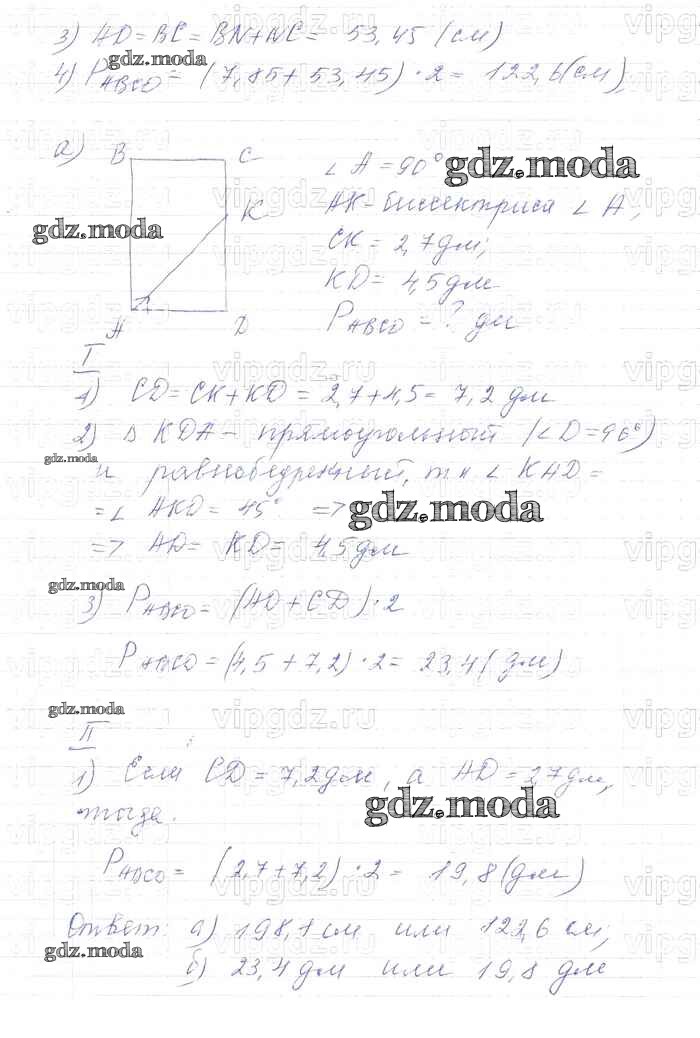 3) AD = BC = BN + NC = 53,45 (см)
4) P ABCD = (7,85 + 53,45) · 2 = 122,6 (см)
gdz.moda
а) B C ∠ A = 90°
gdz.moda
K AK - биссектриса ∠ A,
gdz.moda
CK = 2,7 дм;
KD = 4,5 дм
A D P ABCD = ? дм
I
1) CD = CK + KD = 2,7 + 4,5 = 7,2 дм
2) Δ KDA - прямоугольный (∠ D = 90°)
gdz.moda
и равнобедренный, т к ∠ KAD =
= ∠ AKD = 45° =>
gdz.moda
=> AD = KD = 4,5 дм
gdz.moda
3) P ABCD = (AD + CD) · 2
P ABCD = (4,5 + 7,2) · 2 = 23,4 (дм)
gdz.moda
II
1) Если CD = 7,2 дм, а AD = 2,7 дм,
gdz.moda
тогда.
P ABCD = (2,7 + 7,2) · 2 = 19,8 (дм)
Ответ: а) 198,1 см или 122,6 см;
gdz.moda
б) 23,4 дм или 19,8 дм
vipgdz.ru